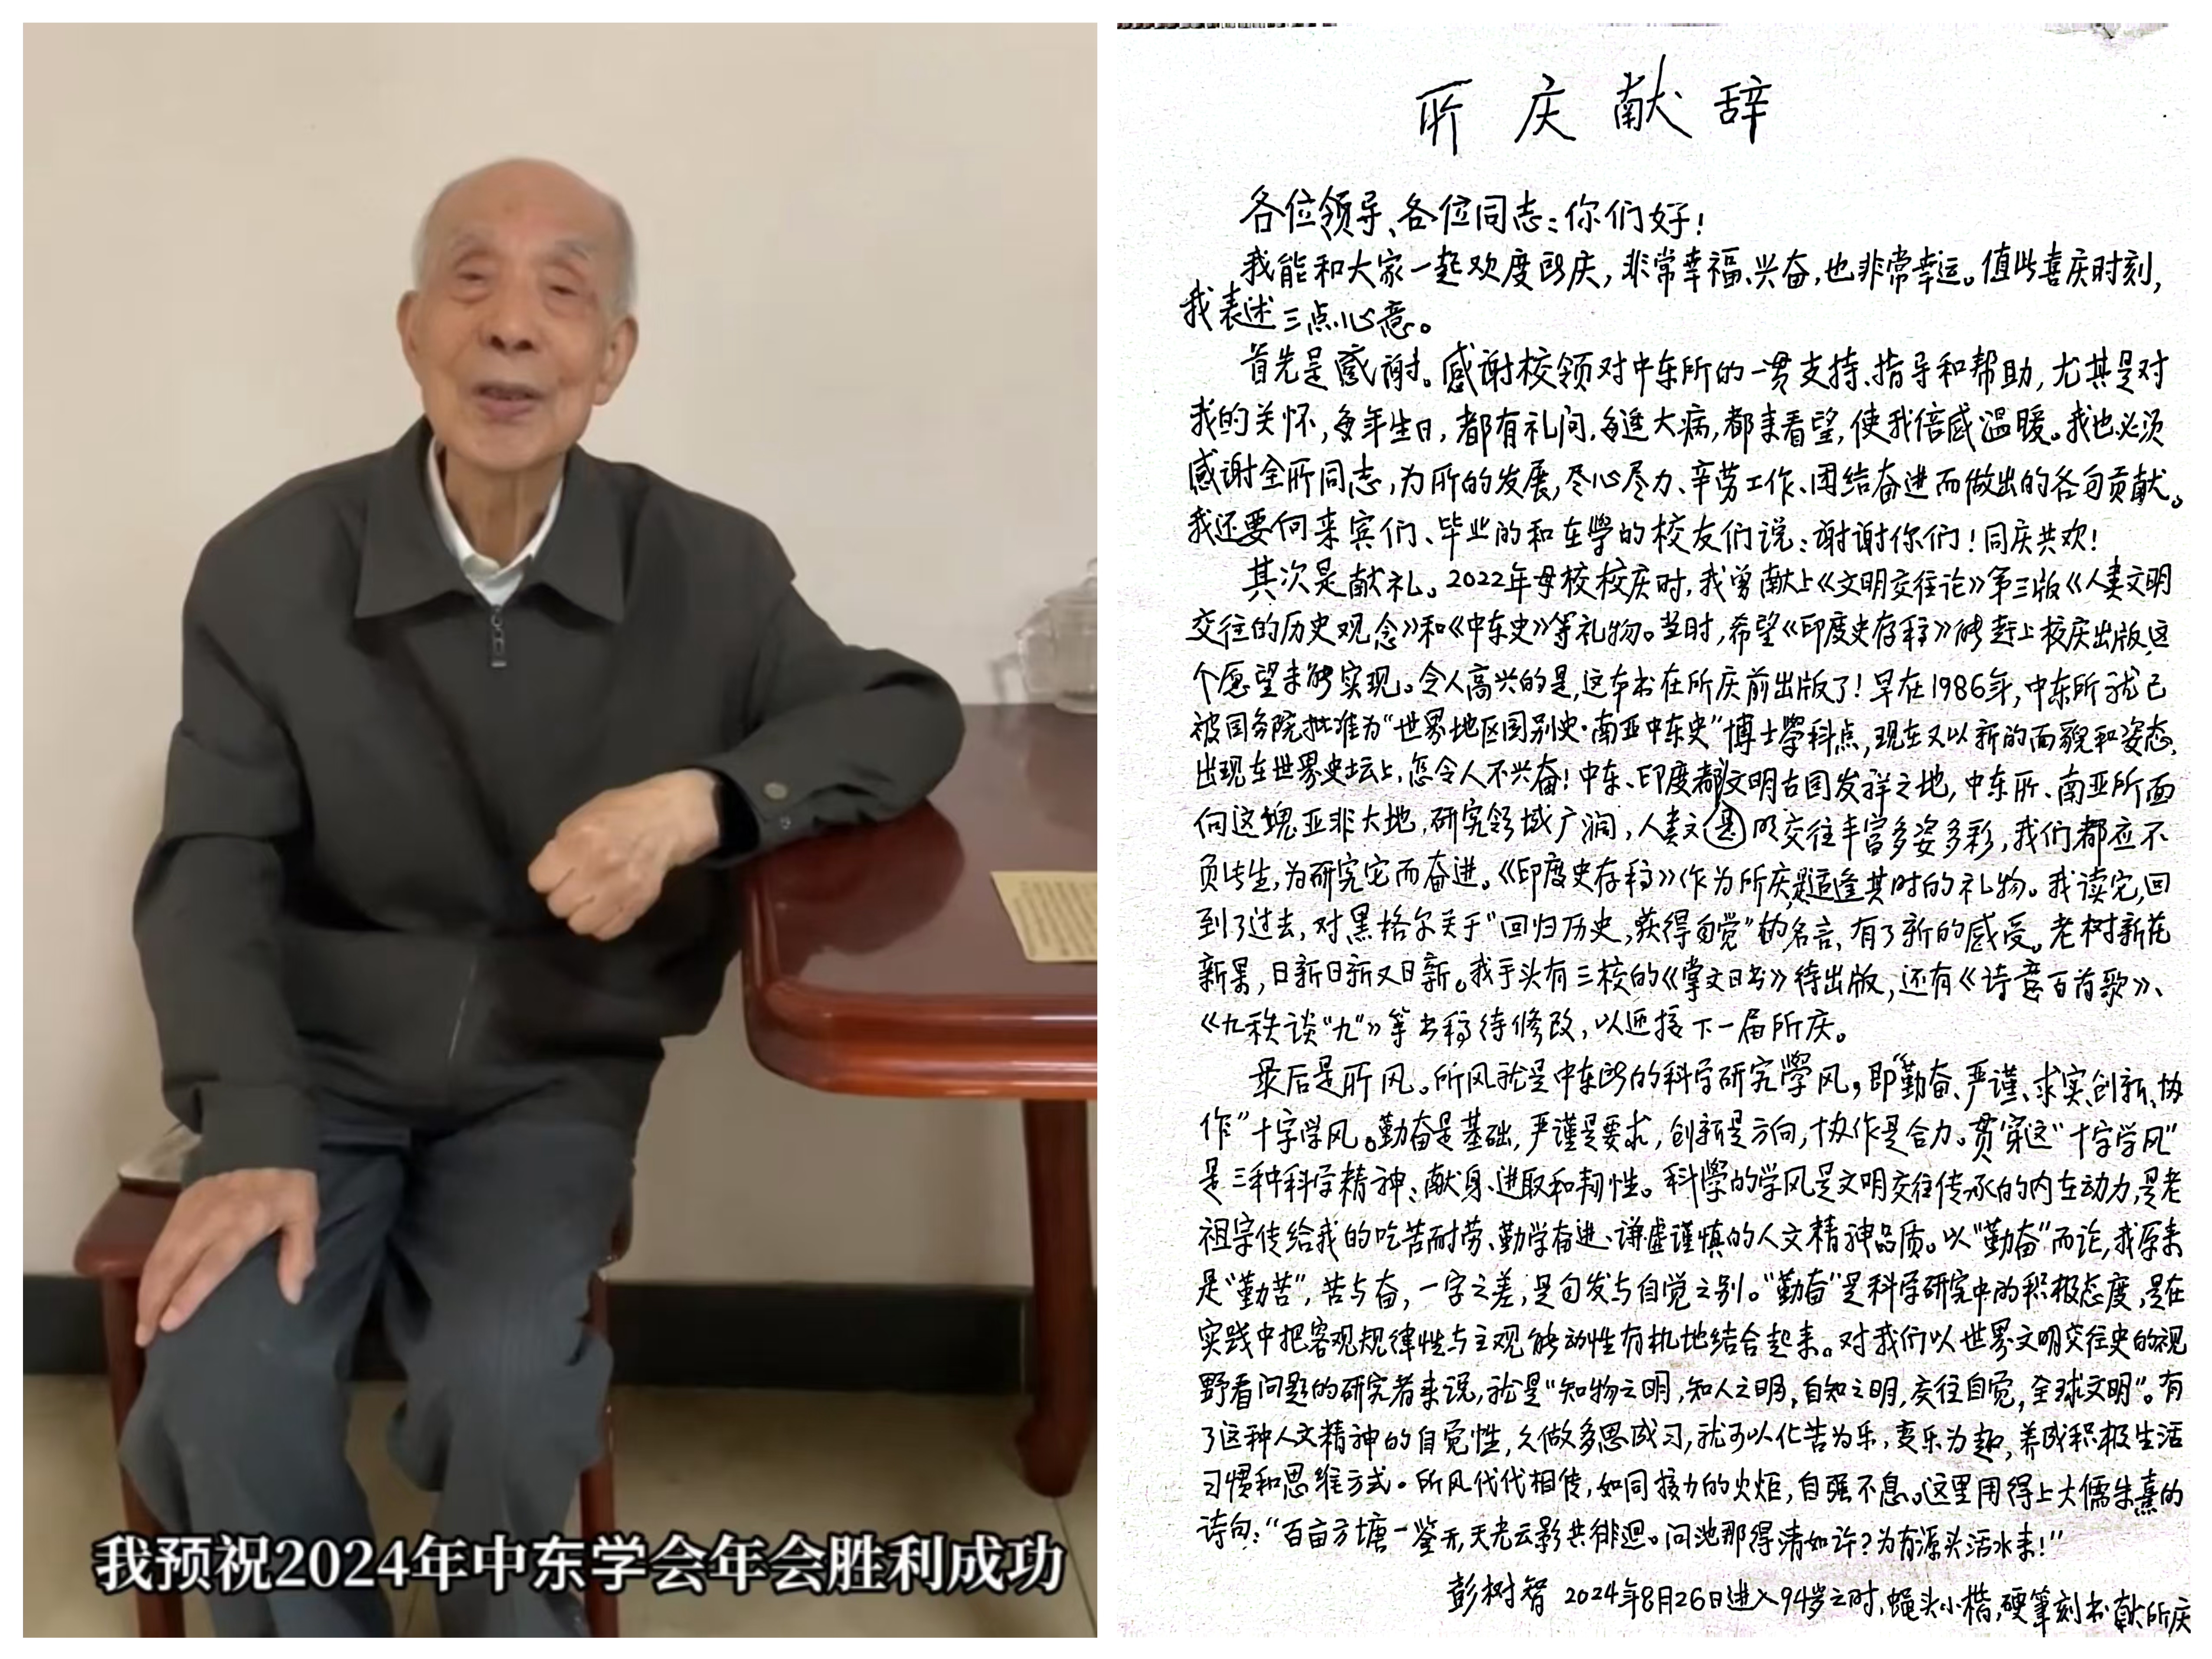 我预祝2024年中东学会年会胜利成功
所庆献辞
各位领导、各位同志：你们好！
我能和大家一起欢度所庆，非常幸福、兴奋，也非常幸运。值此喜庆时刻，
我表述三点心意。
首先是感谢。感谢校领对中东所的一贯支持、指导和帮助，尤其是对
我的关怀，每年生日，都有礼问，每逢大病，都来看望，使我倍感温暖。我也必须
感谢全所同志，为所的发展，尽心尽力、辛劳工作、团结奋进而做出的各自贡献。
我还要向来宾们、毕业的和在学的校友们说：谢谢你们！同庆共欢！
其次是献礼。2022年母校校庆时，我曾献上《文明交往论》第三版《人类文明
交往的历史观念》和《中东史》等礼物。当时，希望《印度史存稿》能赶上校庆出版，这
个愿望未能实现。令人高兴的是，这本书在所庆前出版了！早在1986年，中东所就已
被国务院批准为“世界地区国别史·南亚中东史”博士学科点，现在又以新的面貌和姿态，
出现在世界史坛上，怎令人不兴奋！中东、印度都文明古国发祥之地，中东所、南亚所面
向这块亚非大地，研究领域广阔，人类文是明交往丰富多姿多彩，我们都应不
负此生，为研究它而奋进。《印度史存稿》作为所庆是适逢其时的礼物。我读完，回
到了过去，对黑格尔关于“回归历史，获得自觉”的名言，有了新的感受。老树新花
新果，日新日新又日新。我手头有三校的《掌文日书》待出版，还有《诗意百首歌》、
《九秩谈“九”》等书稿待修改，以迎接下一届所庆。
最后是所风。所风就是中东所的科学研究学风，即“勤奋、严谨、求实、创新、协
作”十字学风。勤奋是基础，严谨是要求，创新是方向，协作是合力。贯穿这“十字学风”
是三种科学精神：献身、进取和韧性。科学的学风是文明交往传承的内在动力，是老
祖宗传给我的吃苦耐劳、勤学奋进、谦虚谨慎的人文精神品质。以“勤奋”而论，我原来
是“勤苦”，苦与奋，一字之差，是自发与自觉之别。“勤奋”是科学研究中的积极态度，是在
实践中把客观规律性与主观能动性有机地结合起来。对我们以世界文明交往史的视
野看问题的研究者来说，就是“知物之明，知人之明，自知之明，交往自觉，全球文明”。有
了这种人文精神的自觉性，久做多思成习，就可以化苦为乐，变乐为趣，养成积极生活
习惯和思维方式。所风代代相传，如同接力的火炬，自强不息。这里用得上大儒朱熹的
诗句：“百亩方塘一鉴开，天光云影共徘徊。问池那得清如许？为有源头活水来！”
彭树智 2024年8月26日进入94岁之时，蝇头小楷，硬笔刻书献所庆